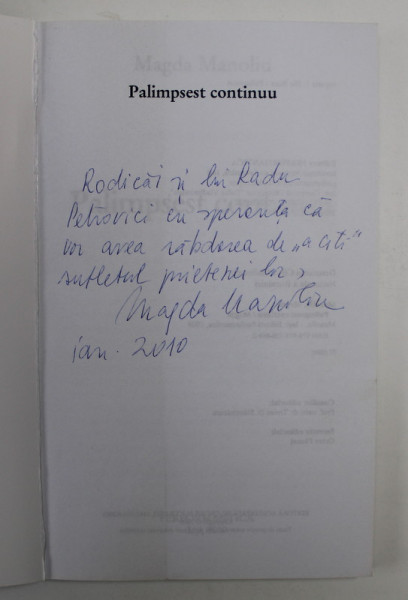 Magda Manoliu
Palimpsest continuu
Rodicăi și lui Radu
Petrovici cu speranța că
vor avea răbdarea de „a citi"
sufletul prietenei lor,
Magda Manoliu
ian. 2010